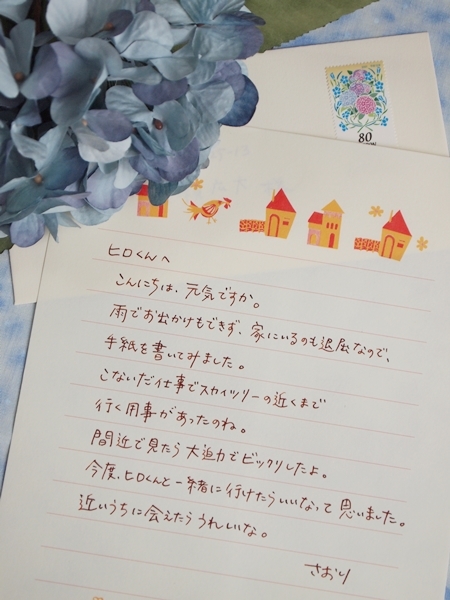 80
ヒロくんへ
こんにちは、元気ですか。
雨でお出かけもできず、家にいるのも退屈なので、
手紙を書いてみました。
こないだ仕事でスカイツリーの近くまで
行く用事があったのね。
間近で見たら大迫力でビックリしたよ。
今度、ヒロくんと一緒に行けたらいいなって思いました。
近いうちに会えたらうれしいな。
さおり